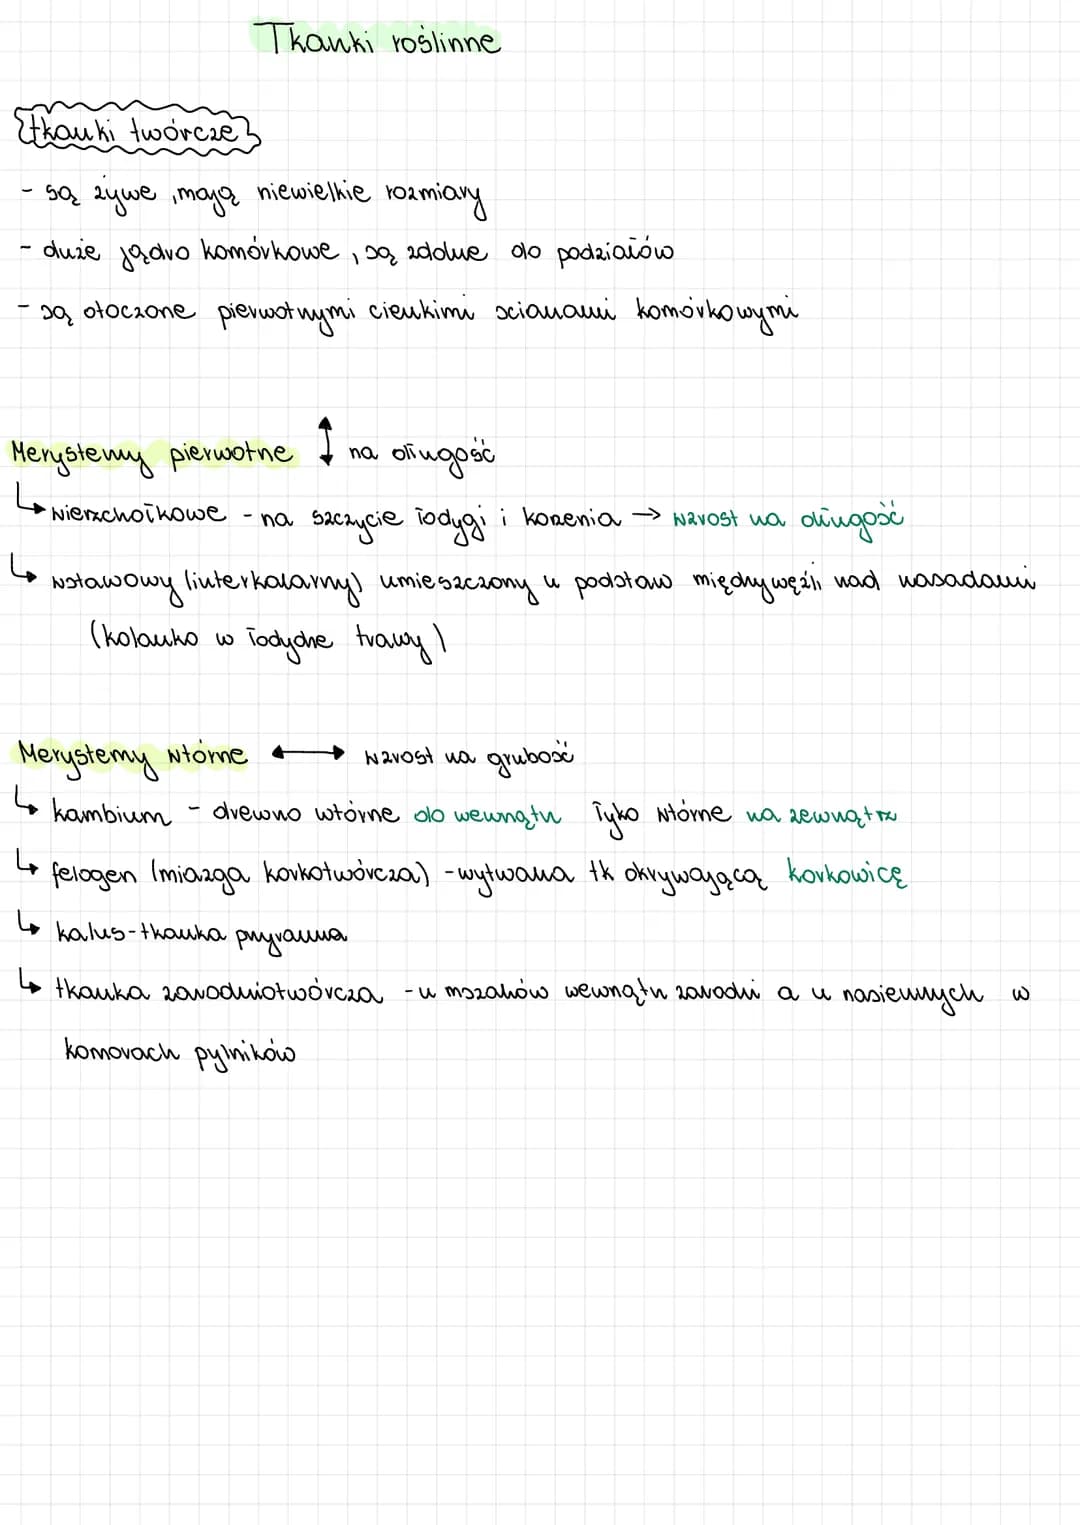 Tkanki roślinne
tkanki twórcze
- są żywe, mają niewielkie rozmiary
- duże jądro komórkowe, są zdolne do podziałów
- są otoczone pierwotnymi cienkimi scianami komórkowymi
Merystemy pierwotne ↕ na długość
↳ wierzchołkowe - na szczycie łodygi i korzenia → wzrost na długość
↳ wstawowy (interkalarny) umieszczony u podstaw międzywęźli nad nasadami
(kolanko w łodydze trawy)
Merystemy wtórne ↔ wzrost na grubość
↳ kambium - drewno wtórne do wewnątrz Łyko wtórne na zewnątrz
↳ felogen (miazga korkotwórcza) - wytwarza tk okrywającą korkowicę
↳ kalus - tkanka przyranna
↳ tkanka zarodniotwórcza - u mszaków wewnątrz zarodni a u nasiennych w
komorach pylników